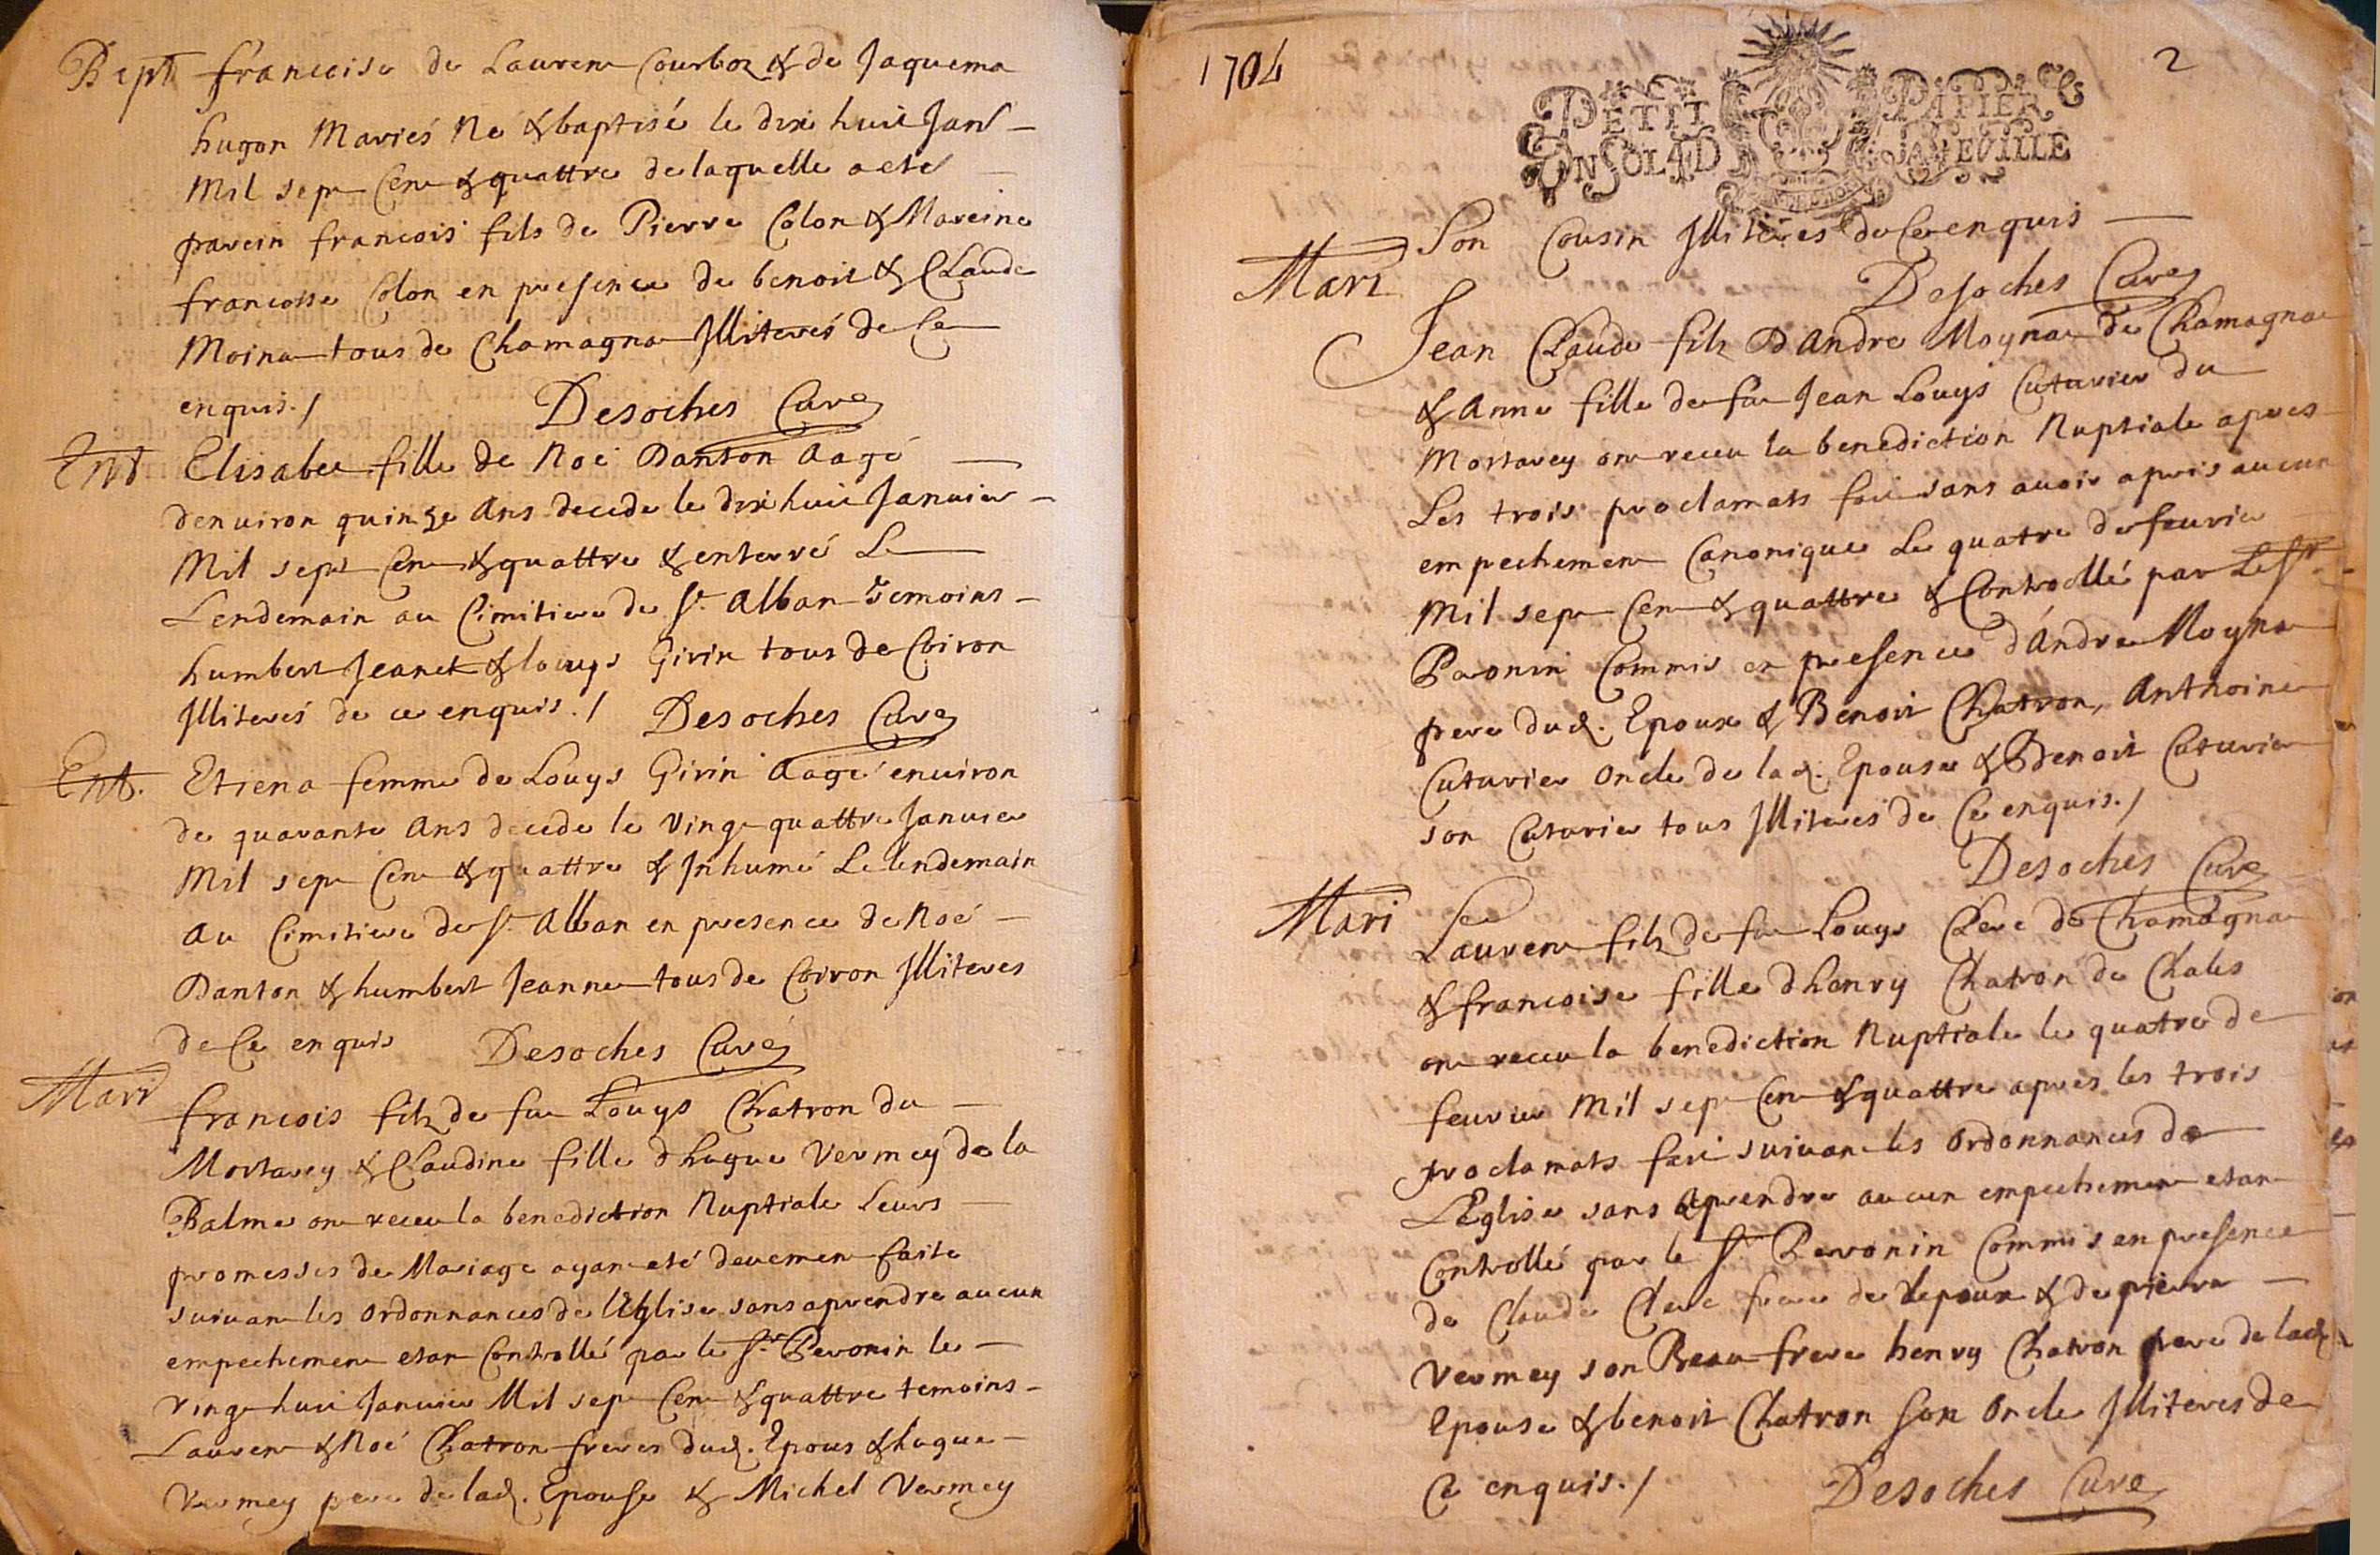 Bapt francoise de Laurent Courboz & de Jaquema
hugon Mariés Né & baptisé le dix huit Janv
Mil sept Cent & quattre de laquelle a eté
parein francois fils de Pierre Colon & Mareine
francoise Colon en presence de benoit & Claude
Moinat tous de Chamagna Jlliterés de Ce
enquis./ Desoches Curé
Ent Elisabet fille de Noé Danton aagé
denuiron quinze ans decede le dix huit Januier
Mil sept Cent & quattre & enterré Le
Lendemain au Cimitiere de St. Alban Temoins
humbert Jeanet & louys Girin tous de Coiron
Jlliterés de ce enquis./ Desoches Curé
Ent. Etiena femme de Louys Girin aagé enuiron
de quarante ans decede le vingt quattre Januier
Mil sept Cent & quattre & Jnhumé Le lendemain
au Cimitiere de St. Alban en presence de Noé
Danton & humbert Jeannet tous de Coiron Jlliteres
de Ce enquis Desoches Curé
Mari francois filz de fu Louys Chatron du
Mortarey & Claudine fille d'hugue Vermey de la
Balme ont receu la benediction Nuptiale Leurs
promesses de Mariage ayant eté deuement faite
suiuant les ordonnances de l'Eglise sans aprendre aucun
empechement etant Controllé par le Sr. Peronin le
vingt huit Januier Mil sept Cent & quattre temoins
Laurent & Noé Chatron freres dud. Epous & hugue
Vermey pere de lad. Epouse & Michel Vermey
1704
2
PETIT PAPIER
UN SOL 4 D LA FEUILLE
Son Cousin Jlliterés de Ce enquis
Desoches Curé
Mari
Jean Claude filz D'Andre Moynat de Chamagna
& Anne fille de fu Jean Louys Cuturier du
Mortarey ont receu la benediction Nuptiale apres
Les trois proclamats fait sans auoir apris aucun
empechement Canonique Le quatre de feurier
Mil sept Cent & quattre & Controllé par Le Sr.
Peronin Commis en presence d'Andre Moynat
pere dud. Epoux & Benoit Chatron, Anthoine
Cuturier oncle de lad. Epouse & Benoit Cuturier
son Cuturier tous Jlliterés de Ce enquis./
Desoches Curé
Mari Laurent filz de fu Louys Clerc de Chamagna
& francoise fille d'henry Chatron de Chales
ont receu la benediction Nuptiale le quatre de
feurier Mil sept Cent & quattre apres les trois
proclamats fait suiuant les ordonnances de
L'Eglise sans aprendre aucun empechement etant
Controllé par le Sr. Peronin Commis en presence
de Claude Clerc frere de lepoux & de pierre
Vermey son Beau frere henry Chatron pere de lad.
Epouse & benoit Chatron son oncle Jlliteres de
Ce enquis./ Desoches Curé